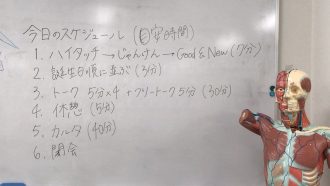 今日のスケジュール (目安時間)
1. ハイタッチ→じゃんけん→Good & New (7分)
2. 誕生日順に並ぶ (3分)
3. トーク 5分×4 + フリートーク 5分 (30分)
4. 休憩 (5分)
5. カルタ (40分)
6. 閉会